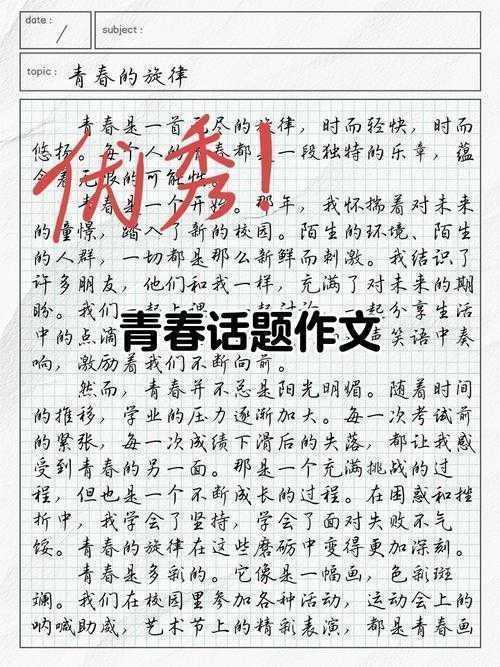 date:
subject:
topic: 青春的旋律
青春是一首无尽的旋律，时而轻快，时而
悠扬。每个人的青春都是一段独特的乐章，蕴
含着无限的可能性。
优秀！
青春是一个开始。那年，我怀揣着对未来
的憧憬，踏入了新的校园。陌生的环境、陌生
的人群，一切都是那么新鲜而刺激。我结识了
许多朋友，他们和我一样，充满了对未来的期
盼。我们一起上课，一起讨论，一起分享生活
中的点滴
青春话题作文
声笑语中奏
响，激励着我们不断向前。
然而，青春并不总是阳光明媚。随着时间
的推移，学业的压力逐渐加大。每一次考试前
的紧张，每一次成绩下滑后的失落，都让我感
受到青春的另一面。那是一个充满挑战的过
程，但也是一个不断成长的过程。在困惑和挫
折中，我学会了坚持，学会了面对失败不气
馁。青春的旋律在这些磨砺中变得更加深刻。
青春是多彩的。它像是一幅画，色彩斑
斓。我们在校园里参加各种活动，运动会上的
呐喊助威，艺术节上的精彩表演，都是青春画